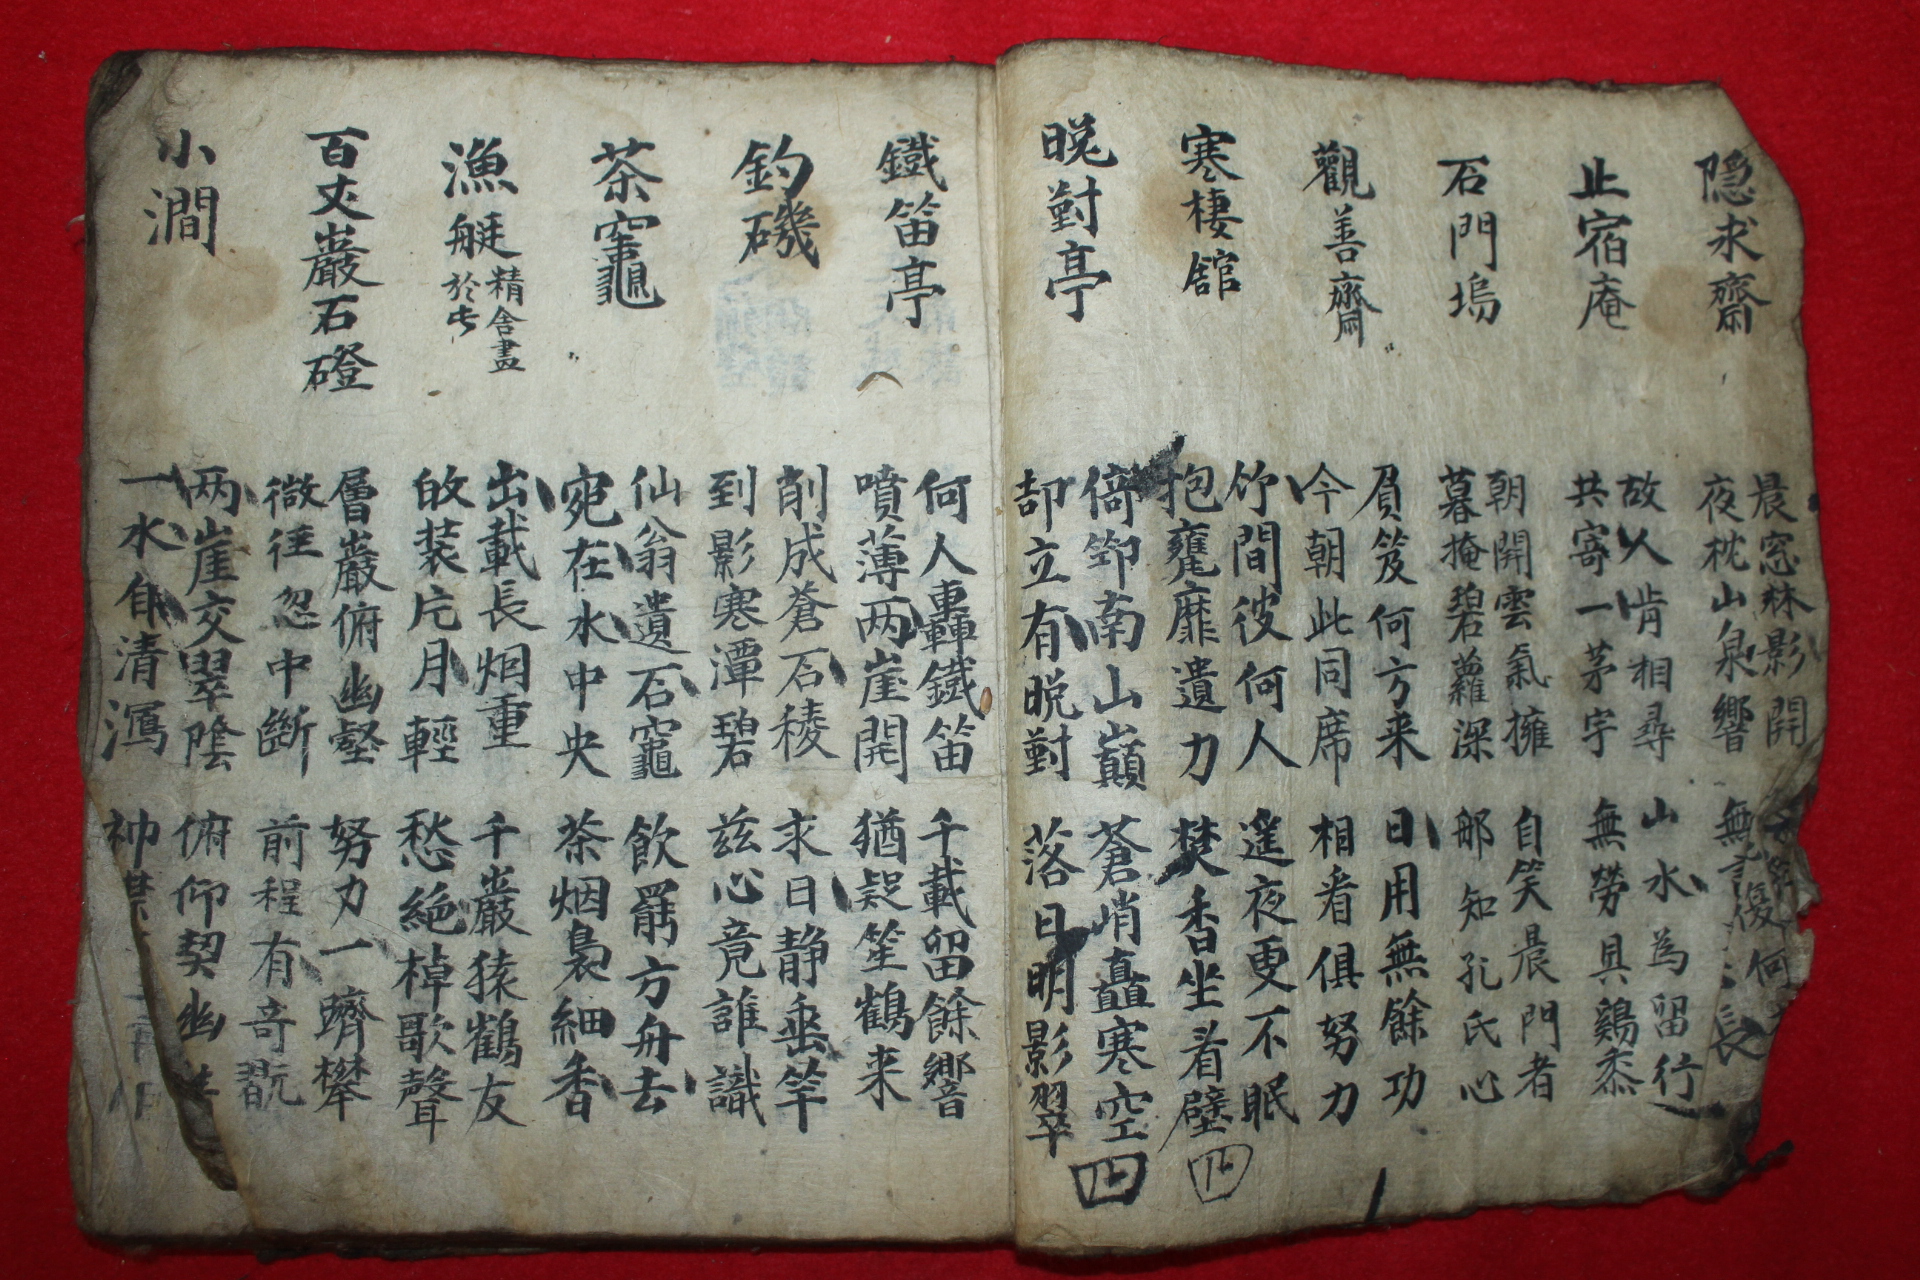 隱求齋
晨窓林影開
夜枕山泉響
復何
無言心長
止宿庵
故人肯相尋
共寄一茅宇
山水為留行
無勞具鷄黍
石門塢
朝開雲氣擁
暮掩碧蘿深
自笑晨門者
那知孔氏心
觀善齋
負笈何方来
今朝此同席
日用無餘功
相看俱努力
寒棲館
竹間彼何人
抱甕靡遺力
遙夜更不眠
焚香坐看壁
晩對亭
倚筇南山巔
却立有晩對
蒼峭矗寒空
落日明影翠
鐵笛亭
何人轟鐵笛
噴薄两崖開
千載留餘響
猶疑笙鶴来
釣磯
削成蒼石稜
到影寒潭碧
求日静垂竿
玆心竟誰識
茶竈
仙翁遺石竈
宛在水中央
飲罷方舟去
茶烟裊細香
漁艇
精舍盡
於此
出載長烟重
装片月輕
千巖猿鶴友
愁絶棹歌聲
百丈巖石磴
層巖俯幽壑
微徑忽中斷
努力一躋攀
前程有奇翫
小澗
两崖交翠陰
一水自清瀉
俯仰契幽
神襟